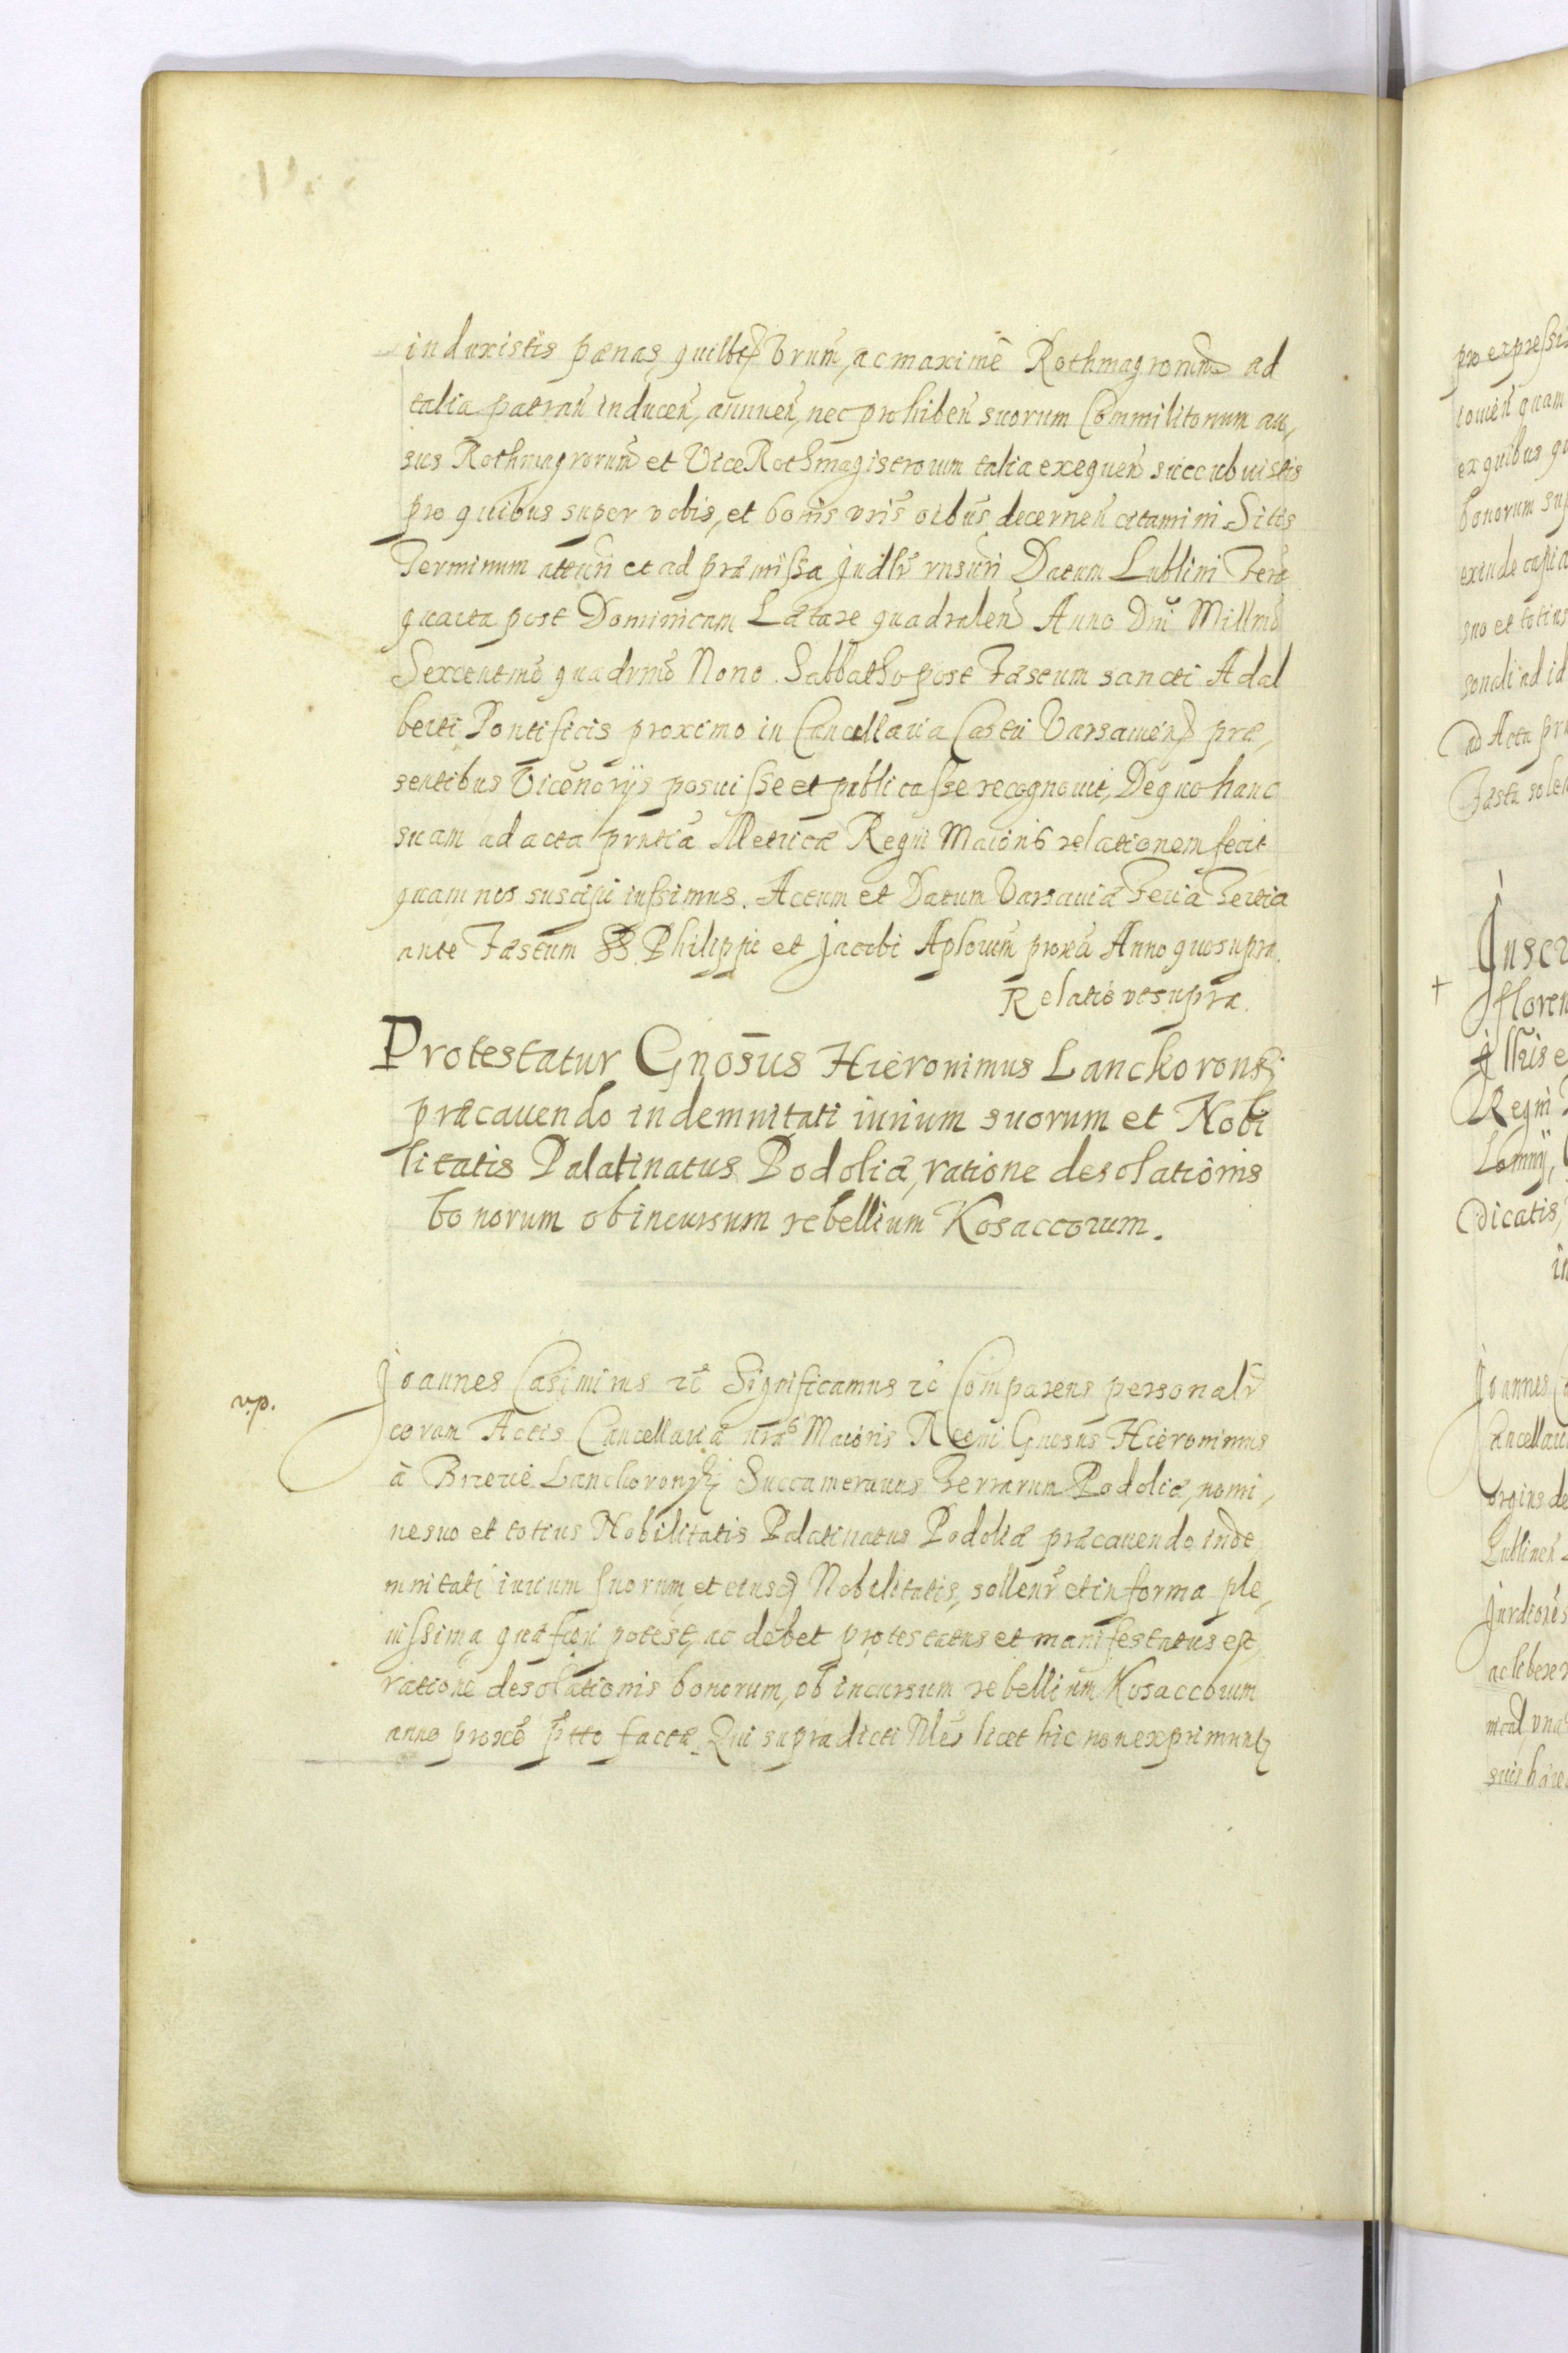 induxistis pœnas, quilbt vrum, ac maximè Rothmagrorum ad
talia patran inducen, annuen, nec prohiben suorum Commilitonum au,
sus Rothmagrorum et ViceRothmagistrorum talia exequen succubuistis
pro quibus super vobis, et bonis vris oibus decernen citamini Sitis
Terminum atturi et ad præmissa Judlr rnsuri Datum Lublini Feria
quarta post Dominicam Lætare quadralen Anno Dni Millmo
Sexcentmo quadrmo Nono. Sabbatho post Fæstum sancti Adal
berti Pontificis proximo in Cancellaria Castri Varsavien præ,
sentibus Vicenorijs posuisse et publicasse recognovit, De quo hanc
suam ad acta prntia Metricæ Regni Maioris relationem fecit
quam nos suscipi iussimus. Actum et Datum Varsaviæ Feria Tertia
ante Fæstum SS. Philippi et Jacobi Aplorum proxa Anno quo supra.
Relatio vt supra.
Protestatur Gnosus Hieronimus Lanckoronski
præcauendo indemnitati iurium suorum et Nobi
litatis Palatinatus Podoliæ, ratione desolationis
bonorum ob incursum rebellium Kosaccorum.
v.p.
Joannes Casimirus rc Significamus rc Comparens personalr
coram Actis Cancellariæ nræ Maioris Regni Gnosus Hieronimus
à Brzezie Lanckoronski Succamerarius Terrarum Podoliæ, nomi,
ne suo et totius Nobilitatis Palatinatus Podoliæ præcauendo inde
mnitati iurium suorum, et eiusd Nobilitatis, sollenr et in forma ple,
nissima, qua fieri potest, ac debet protestatus et manifestatus est
ratione desolationis bonorum, ob incursum rebellium Kosaccorum
anno proxe ptto factæ. Qui supradicti Nles licet hic non exprimuntr
pro expressis
quam
ex quibus
bonorum
exinde
suo et totius
ad id
ad Acta
Jnscr
+
floren
Regni
dicatis,
in
Joannes
Cancellari
Lublinen
ac libere
suis